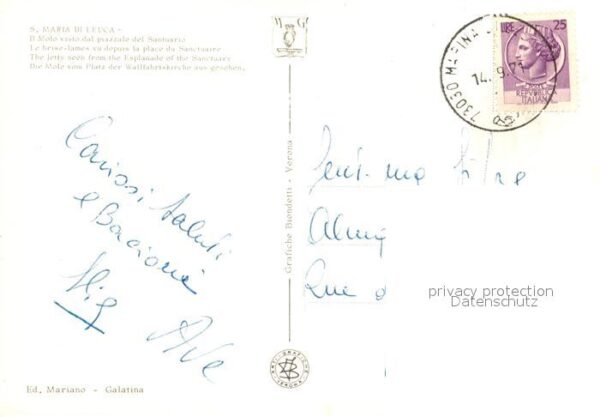 S. MARIA DI LEUCA -
Il Molo visto dal piazzale del Santuario
Le brise-lames vu depuis la place du Sanctuaire
The jetty seen from the Esplanade of the Sanctuary
Die Mole vom Platz der Wallfahrtskirche aus gesehen.
W G
LIRE 25
REPUBBLICA
ITALIANA
73030 MARINA
14.9.7
Carissi saluti
e Bacioni
Ave
Grafiche Biondetti - Verona
Gent.ma
privacy protection
Datenschutz
Ed. Mariano - Galatina